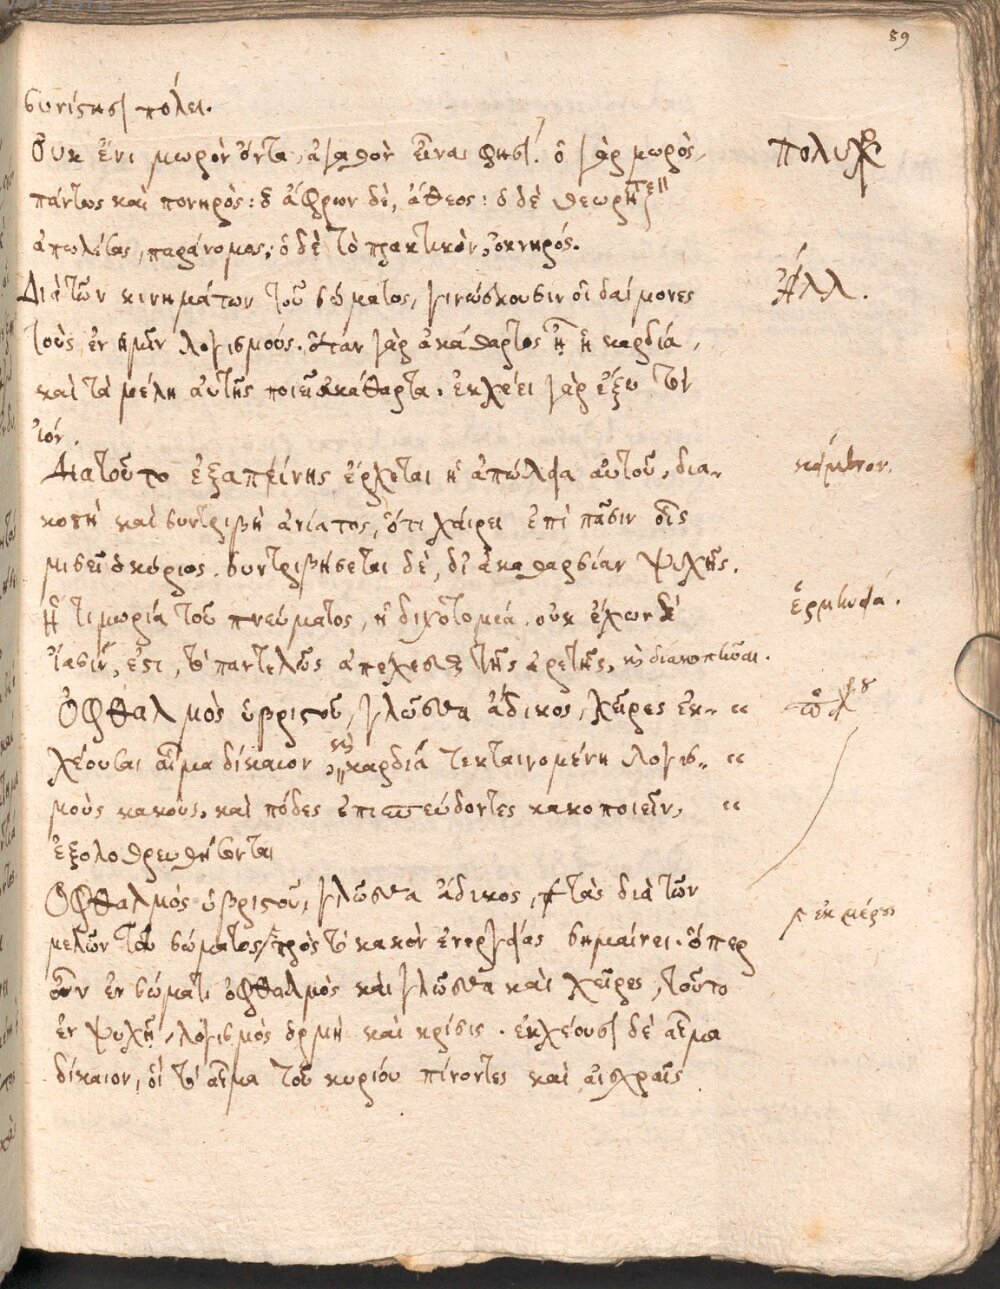 59
συνίστησι πόλει.
Οὐκ ἔνι μωρὸν ὄντα, ἀγαθὸν εἶναι φησί. ὁ γὰρ μωρὸς,
πάντως καὶ πονηρὸς: ὁ ἄφρων δὲ, ἄθεος: ὁ δὲ θεωρη
ἀπωλέσας, παράνομος, ὁ δὲ τὸ πρακτικὸν, ὀκνηρός.
Ἀλλ.
Διὰ τῶν κινημάτων τοῦ σώματος, γινώσκουσιν οἱ δαίμονες
τοὺς ἐν ἡμῖν λογισμούς. ὅταν γὰρ ἀκάθαρτος ᾖ ἡ καρδία,
καὶ τὰ μέλη αὐτῆς ποιεῖ ἀκάθαρτα. ἐκχέει γὰρ ἔξω τὸν
ἰόν.
Διατοῦτο ἐξαπίνης ἔρχεται ἡ ἀπώλεια αὐτοῦ, δια-
κοπὴ καὶ συντριβὴ ἀνίατος, ὅτι χαίρει ἐπὶ πᾶσιν οἷς
μισεῖ ὁ κύριος. συντριβήσεται δὲ, δι' ἀκαθαρσίαν ψυχῆς.
κείμενον.
Ἡ τιμωρία τοῦ πνεύματος, ἡ διχοτομία. οὐκ ἔχων δὲ
ἴασίν, ἐστι, τὸ παντελῶς ἀπέχεσθαι τῆς ἀρετῆς, καὶ
ἑρμηνεία.
Ὀφθαλμὸς ὑβριστοῦ, γλῶσσα ἄδικος, χεῖρες ἐκ- "
χέουσαι αἷμα δίκαιον καὶ καρδία τεκταινομένη λογισ- "
μοὺς κακούς, καὶ πόδες ἐπισπεύδοντες κακοποιεῖν, "
ἐξολοθρευθήσονται
Ὀφθαλμός ὑβριστοῦ, γλῶσσα ἄδικος, τὰς διὰ τῶν
μελῶν τοῦ σώματος πρὸς τὸ κακὸν ἐνεργείας σημαίνει. ὅπερ
οὖν ἐν σώματι ὀφθαλμὸς καὶ γλῶσσα καὶ χεῖρες, τοῦτο
ἐν ψυχῇ, λογισμὸς ὁρμὴ καὶ κρίσις. ἐκχέουσι δὲ αἷμα
δίκαιον, οἱ τὸ αἷμα τοῦ κυρίου πίνοντες καὶ αἰσχραῖς